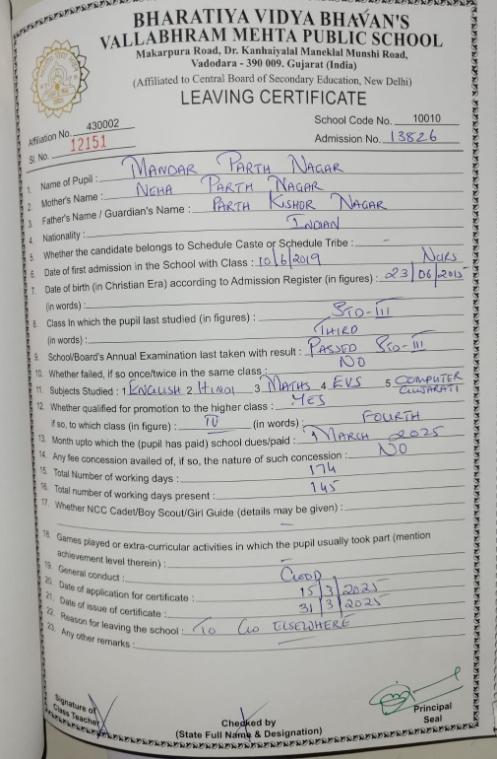 BHARATIYA VIDYA BHAVAN'S
VALLABHRAM MEHTA PUBLIC SCHOOL
Makarpura Road, Dr. Kanhaiyalal Maneklal Munshi Road,
Vadodara - 390 009. Gujarat (India)
(Affiliated to Central Board of Secondary Education, New Delhi)
LEAVING CERTIFICATE
Affiliation No. 430002 School Code No. 10010
Sl. No. 12151 Admission No. 13826
1. Name of Pupil : MANDAR PARTH NAGAR
2. Mother's Name : NEHA PARTH NAGAR
3. Father's Name / Guardian's Name : PARTH KISHOR NAGAR
4. Nationality : INDIAN
5. Whether the candidate belongs to Schedule Caste or Schedule Tribe : -
6. Date of first admission in the School with Class : 10/6/2019 NURS
7. Date of birth (in Christian Era) according to Admission Register (in figures) : 23/06/2015
(in words) :
8. Class In which the pupil last studied (in figures) : STD-III
(in words) : THIRD
9. School/Board's Annual Examination last taken with result : PASSED STD-III
10. Whether failed, if so once/twice in the same class : NO
11. Subjects Studied : 1 ENGLISH 2 HINDI 3 MATHS 4 EVS 5 COMPUTER GUJARATI
12. Whether qualified for promotion to the higher class : YES
if so, to which class (in figure) : IV (in words) : FOURTH
13. Month upto which the (pupil has paid) school dues/paid : MARCH 2025
14. Any fee concession availed of, if so, the nature of such concession : NO
15. Total Number of working days : 174
16. Total number of working days present : 145
17. Whether NCC Cadet/Boy Scout/Girl Guide (details may be given) :
-
18. Games played or extra-curricular activities in which the pupil usually took part (mention
achievement level therein) : -
19. General conduct : GOOD
20. Date of application for certificate : 15/3/2025
21. Date of issue of certificate : 31/3/2025
22. Reason for leaving the school : TO GO ELSEWHERE
23. Any other remarks : -
Signature of
Class Teacher
Checked by
(State Full Name & Designation)
Principal
Seal